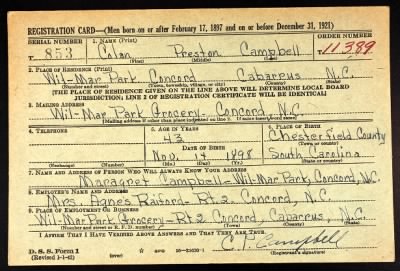 REGISTRATION CARD—(Men born on or after February 17, 1897 and on or before December 31, 1921)
SERIAL NUMBER 1. NAME (Print) ORDER NUMBER
T 853 Colon Preston Campbell 11389
(First) (Middle) (Last)
2. PLACE OF RESIDENCE (Print)
Wil-Mar Park Concord Cabarrus N.C.
(Number and street) (Town, township, village, or city) (County) (State)
[THE PLACE OF RESIDENCE GIVEN ON THE LINE ABOVE WILL DETERMINE LOCAL BOARD
JURISDICTION; LINE 2 OF REGISTRATION CERTIFICATE WILL BE IDENTICAL]
3. MAILING ADDRESS
Wil-Mar Park Grocery - Concord, N.C.
[Mailing address if other than place indicated on line 2. If same insert word same]
4. TELEPHONE 5. AGE IN YEARS 6. PLACE OF BIRTH
43 Chesterfield County
DATE OF BIRTH (Town or county)
Nov. 14 1898 South Carolina
(Exchange) (Number) (Mo.) (Day) (Yr.) (State or country)
7. NAME AND ADDRESS OF PERSON WHO WILL ALWAYS KNOW YOUR ADDRESS
Maragret Campbell - Wil-Mar Park, Concord, N.C.
8. EMPLOYER'S NAME AND ADDRESS
Mrs. Agnes Raiford - Rt. 2, Concord, N.C.
9. PLACE OF EMPLOYMENT OR BUSINESS
Wil-Mar Park Grocery - Rt 2 Concord, Cabarrus, N.C.
(Number and street or R. F. D. number) (Town) (County) (State)
I AFFIRM THAT I HAVE VERIFIED ABOVE ANSWERS AND THAT THEY ARE TRUE.
D. S. S. Form 1
(Revised 1-1-42) (over)
C. P. Campbell
(Registrant's signature)